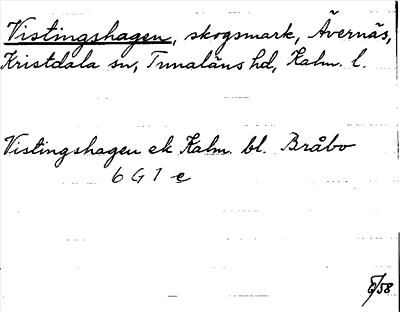 Vistingshagen, skogsmark, Ävernäs,
Kristdala sn, Tunaläns hd, Kalm. l.
Vistingshagen ek Kalm. bl. Bråbo
6 G 1 e
6/58